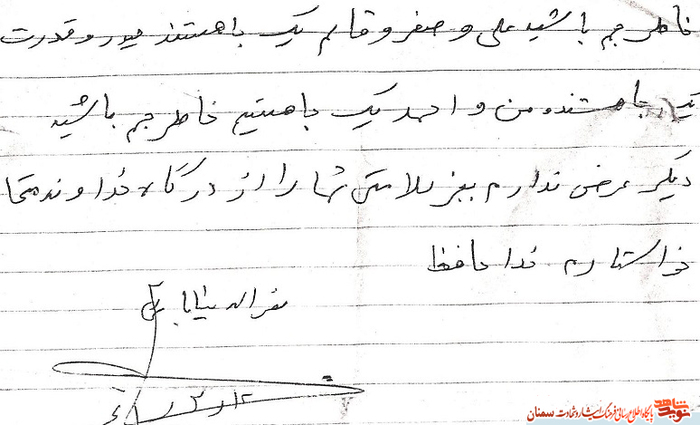 خاطر جم باشید علی و صفر و قاسم یک جا هستند حیدر و قدرت
یک جا هستند و من و احمد یک جا هستیم خاطر جم باشید
دیگر عرضی ندارم بغیر سلامتی شما را از درگاه خداوند متعا
خواستارم خدا حافظ
نوید شاهد
پایگاه اطلاع رسانی فرهنگ ایثار و شهادت سمنان